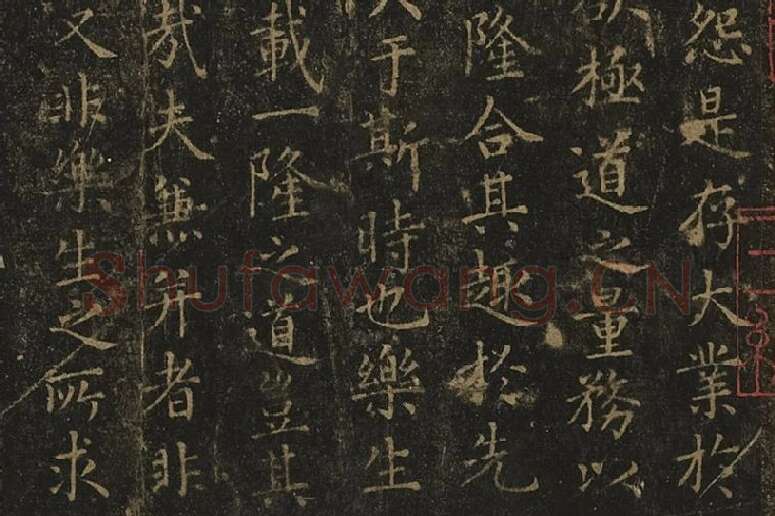 怨是存大業於
極道之量務以
隆合其趣於先
于斯時也樂生
載一隆之道豈其
哉夫兼并者非
又非樂生之所求
Shufawang.CN